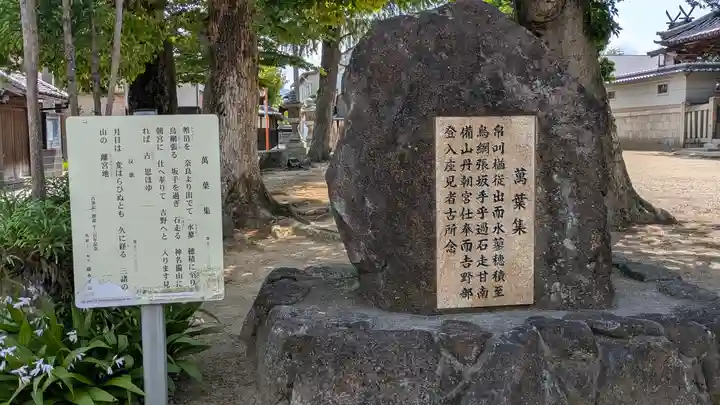 萬葉集
幣帛を 奈良より出でて 水蓼 穂積に至り
鳥網張る 坂手を過ぎ 石走る 神名備山に
朝宮に 仕へ奉りて 吉野へと 入ります見
れば 古 思ほゆ
反歌
月日は 変はらひぬとも 久に経る 三諸の
山の 離宮地
萬葉集
帛𠮧楢従出而水蓼穂積至
鳥網張坂手乎過石走甘南
備山丹朝宮仕奉而吉野部
登入座見者古所念